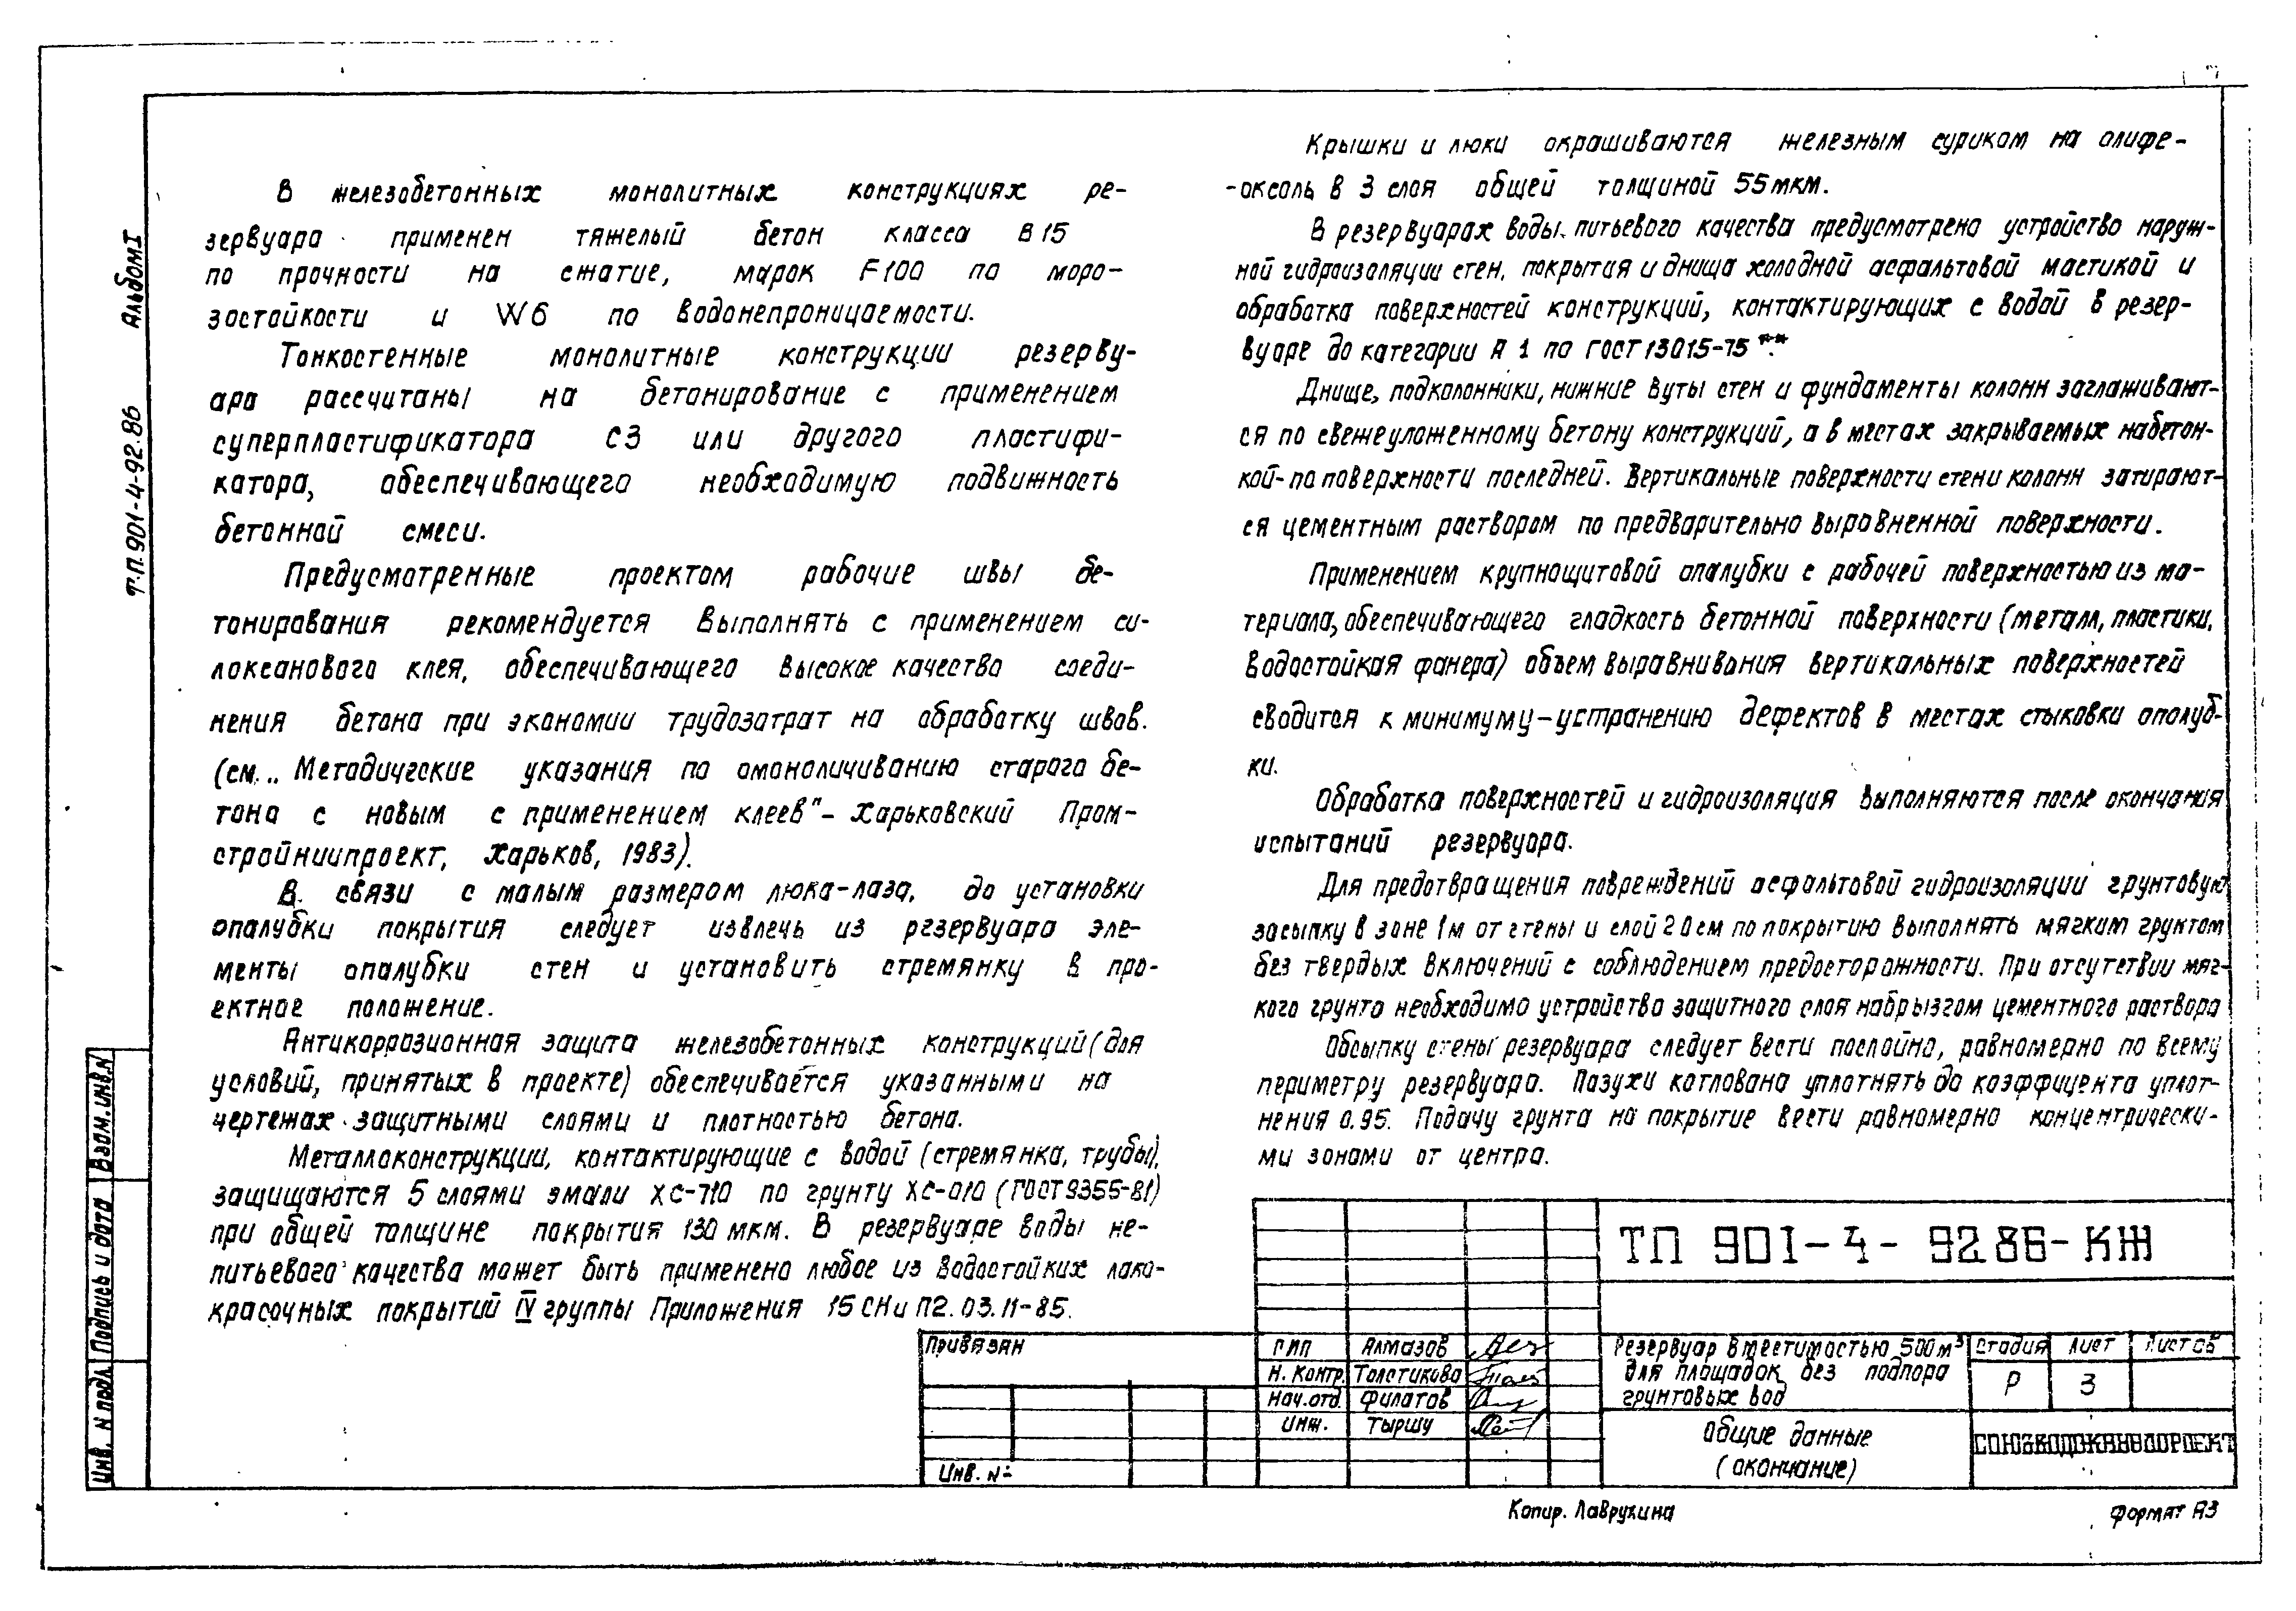 Альбом I
Т.П. 901-4-92.86
В железобетонных монолитных конструкциях ре-
зервуара применен тяжелый бетон класса В 15
по прочности на сжатие, марок F 100 по моро-
зостойкости и W 6 по водонепроницаемости.
Тонкостенные монолитные конструкции резерву-
ара рассчитаны на бетонирование с применением
суперпластификатора С3 или другого пластифи-
катора, обеспечивающего необходимую подвижность
бетонной смеси.
Предусмотренные проектом рабочие швы бе-
тонирования рекомендуется выполнять с применением си-
локсанового клея, обеспечивающего высокое качество соеди-
нения бетона при экономии трудозатрат на обработку швов.
(см. „Методические указания по омоноличиванию старого бе-
тона с новым с применением клеев" - Харьковский Пром-
стройниипроект, Харьков, 1983).
В связи с малым размером люка-лаза, до установки
опалубки покрытия следует извлечь из резервуара эле-
менты опалубки стен и установить стремянку в про-
ектное положение.
Антикоррозионная защита железобетонных конструкций (для
условий, принятых в проекте) обеспечивается указанными на
чертежах защитными слоями и плотностью бетона.
Металлоконструкции, контактирующие с водой (стремянка, трубы),
защищаются 5 слоями эмали ХС-710 по грунту ХС-010 (ГОСТ 9355-81)
при общей толщине покрытия 130 мкм. В резервуаре воды не-
питьевого качества может быть применено любое из водостойких лако-
красочных покрытий IV группы Приложения 15 СНиП 2.03.11-85.
Крышки и люки окрашиваются железным суриком на олифе-
-оксоль в 3 слоя общей толщиной 55 мкм.
В резервуарах воды питьевого качества предусмотрено устройство наруж-
ной гидроизоляции стен, покрытия и днища холодной асфальтовой мастикой и
обработка поверхностей конструкций, контактирующих с водой в резер-
вуаре до категории А 1 по ГОСТ 13015-75**.
Днище, подколонники, нижние вуты стен и фундаменты колонн заглаживают-
ся по свежеуложенному бетону конструкций, а в местах закрываемых набетон-
кой-по поверхности последней. Вертикальные поверхности стен и колонн затирают-
ся цементным раствором по предварительно выравненной поверхности.
Применением крупнощитовой опалубки с рабочей поверхностью из ма-
териала, обеспечивающего гладкость бетонной поверхности (металл, пластики,
водостойкая фанера) объем выравнивания вертикальных поверхностей
сводится к минимуму-устранению дефектов в местах стыковки опалуб-
ки.
Обработка поверхностей и гидроизоляция выполняются после окончания
испытаний резервуара.
Для предотвращения повреждений асфальтовой гидроизоляции грунтовую
засыпку в зоне 1м от стены и слой 20 см по покрытию выполнять мягким грунтом
без твердых включений с соблюдением предосторожности. При отсутствии мяг-
кого грунта необходимо устройство защитного слоя набрызгом цементного раствора
Обсыпку стены резервуара следует вести послойно, равномерно по всему
периметру резервуара. Пазухи котлована уплотнять до коэффицента уплот-
нения 0.95. Подачу грунта на покрытие вести равномерно концентрически-
ми зонами от центра.
ТП 901-4-92 86-КЖ
Привязан
Инв. №
ГИП Алмазов
Н. Контр. Толстикова
Нач. отд. Филатов
Инж. Тыршу
Резервуар вместимостью 500 м³
для площадок без подпора
грунтовых вод
Стадия Лист Листов
Р 3
Общие данные
(окончание)
СОЮЗВОДОКАНАЛПРОЕКТ
Взам. инв. №
Подпись и дата
Инв. № подл.
Копир. Лаврухина
Формат А3